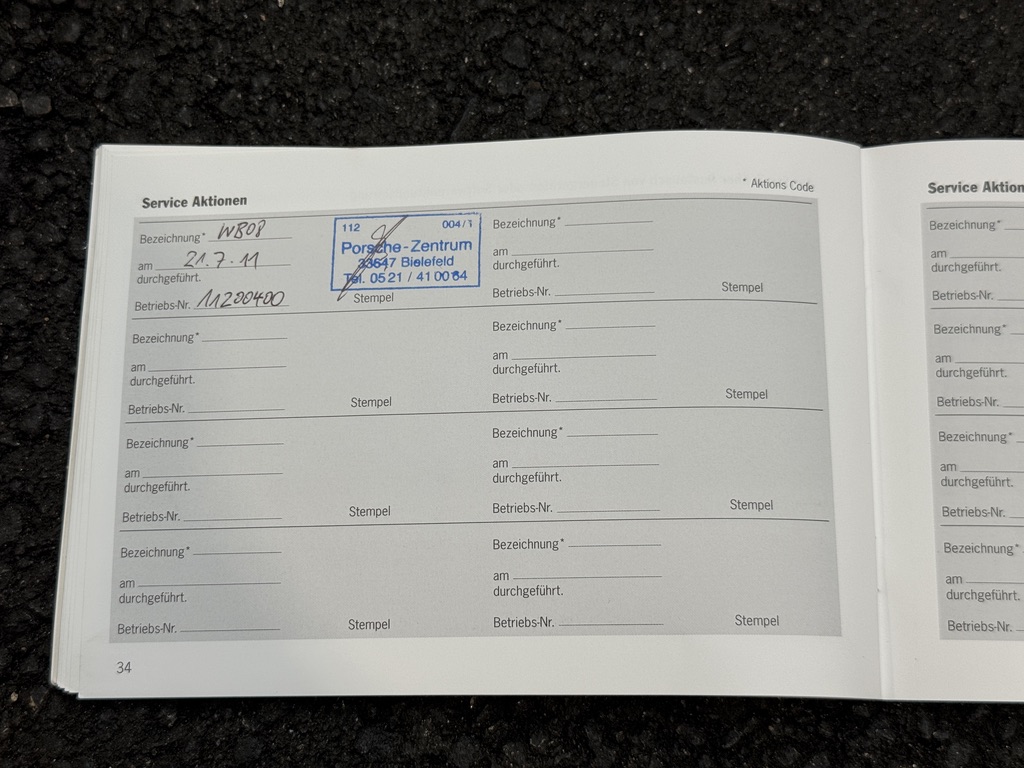 Service Aktionen
* Aktions Code
Bezeichnung* WB08
am 21.7.11
durchgeführt.
Betriebs-Nr. 11200400
112 004/1
Porsche-Zentrum
33647 Bielefeld
Tel. 05 21 / 41 00 64
Stempel
Bezeichnung*
am
durchgeführt.
Betriebs-Nr.
Stempel
Bezeichnung*
am
durchgeführt.
Betriebs-Nr.
Stempel
Bezeichnung*
am
durchgeführt.
Betriebs-Nr.
Stempel
Bezeichnung*
am
durchgeführt.
Betriebs-Nr.
Stempel
Bezeichnung*
am
durchgeführt.
Betriebs-Nr.
Stempel
Bezeichnung*
am
durchgeführt.
Betriebs-Nr.
Stempel
Bezeichnung*
am
durchgeführt.
Betriebs-Nr.
Stempel
34
Service Aktion
Bezeichnung*
am
durchgeführt.
Betriebs-Nr.
Bezeichnung*
am
durchgeführt.
Betriebs-Nr.
Bezeichnung*
am
durchgeführt.
Betriebs-Nr.
Bezeichnung*
am
durchgeführt.
Betriebs-Nr.